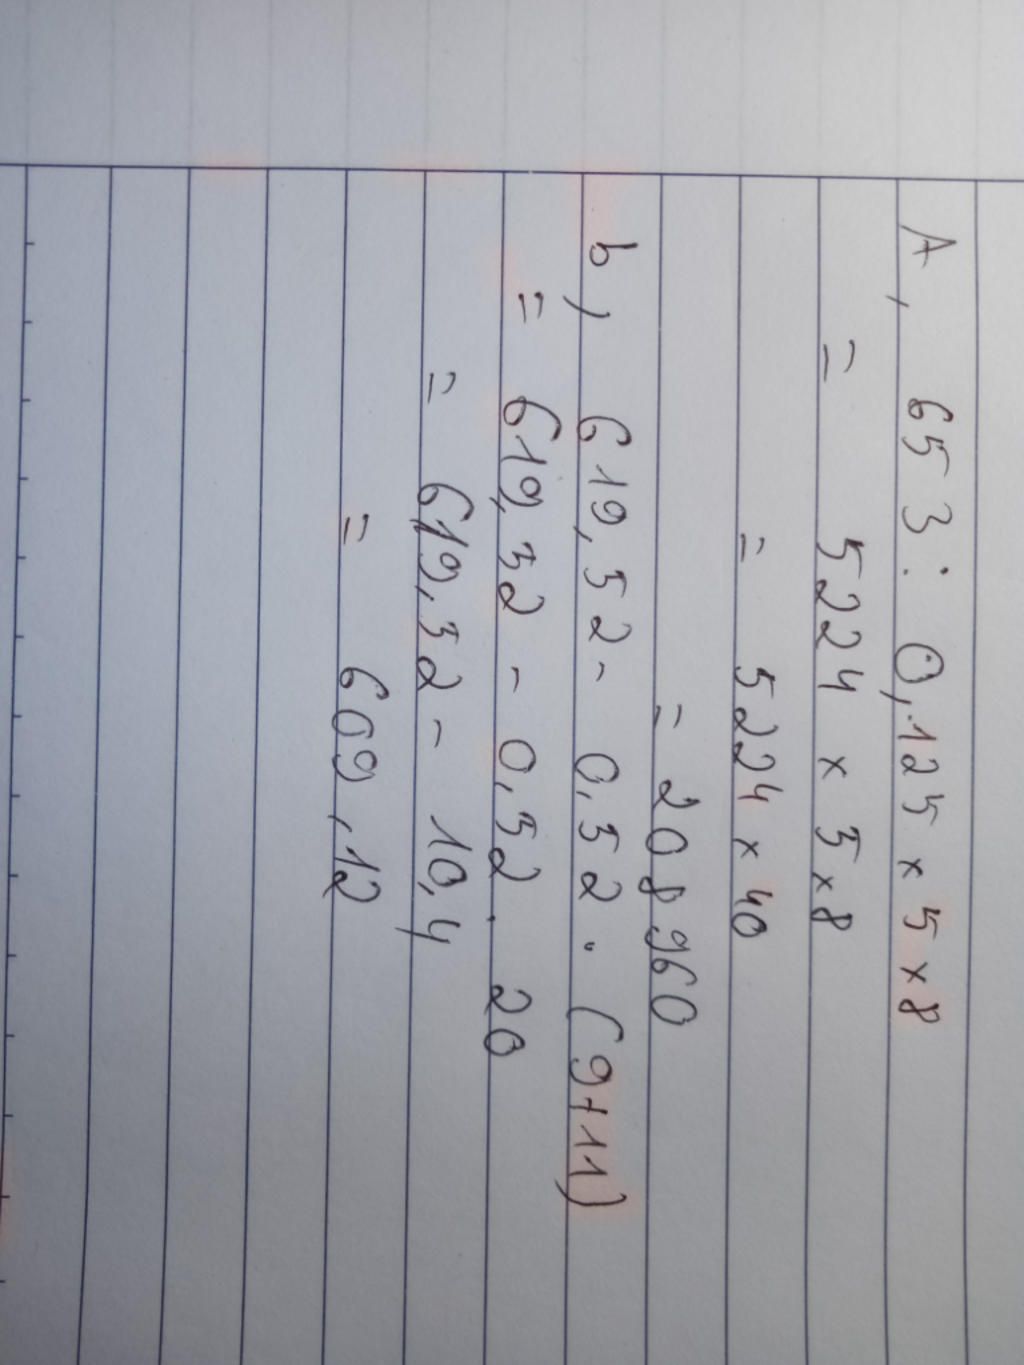 A, 653 : 0,125 x 5 x 8
= 5224 x 5 x 8
= 5224 x 40
= 208960
b, 619,52 - 0,52 . (9+11)
= 619,52 - 0,52 . 20
= 619,52 - 10,4
= 609,12